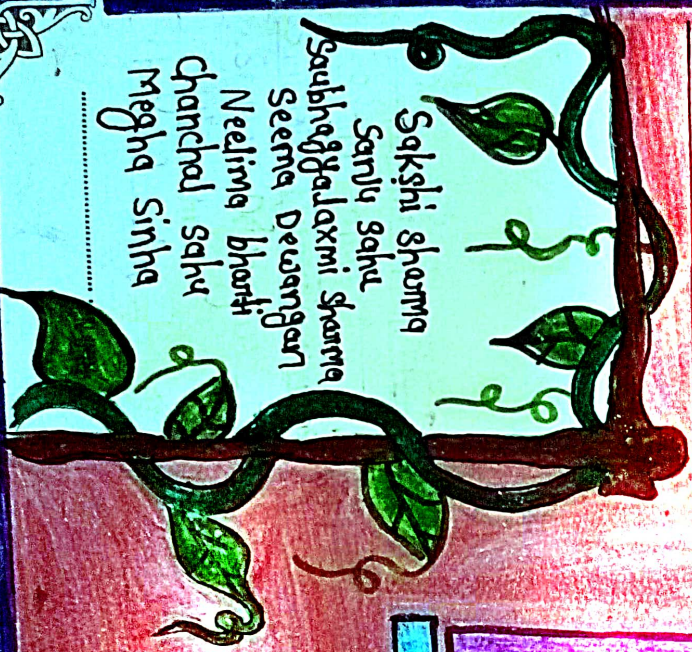 Sakshi sharma
Sanju sahu
Saubhagyalaxmi sharma
Seema Dewangan
Neelima bharti
Chanchal sahu
Megha Sinha